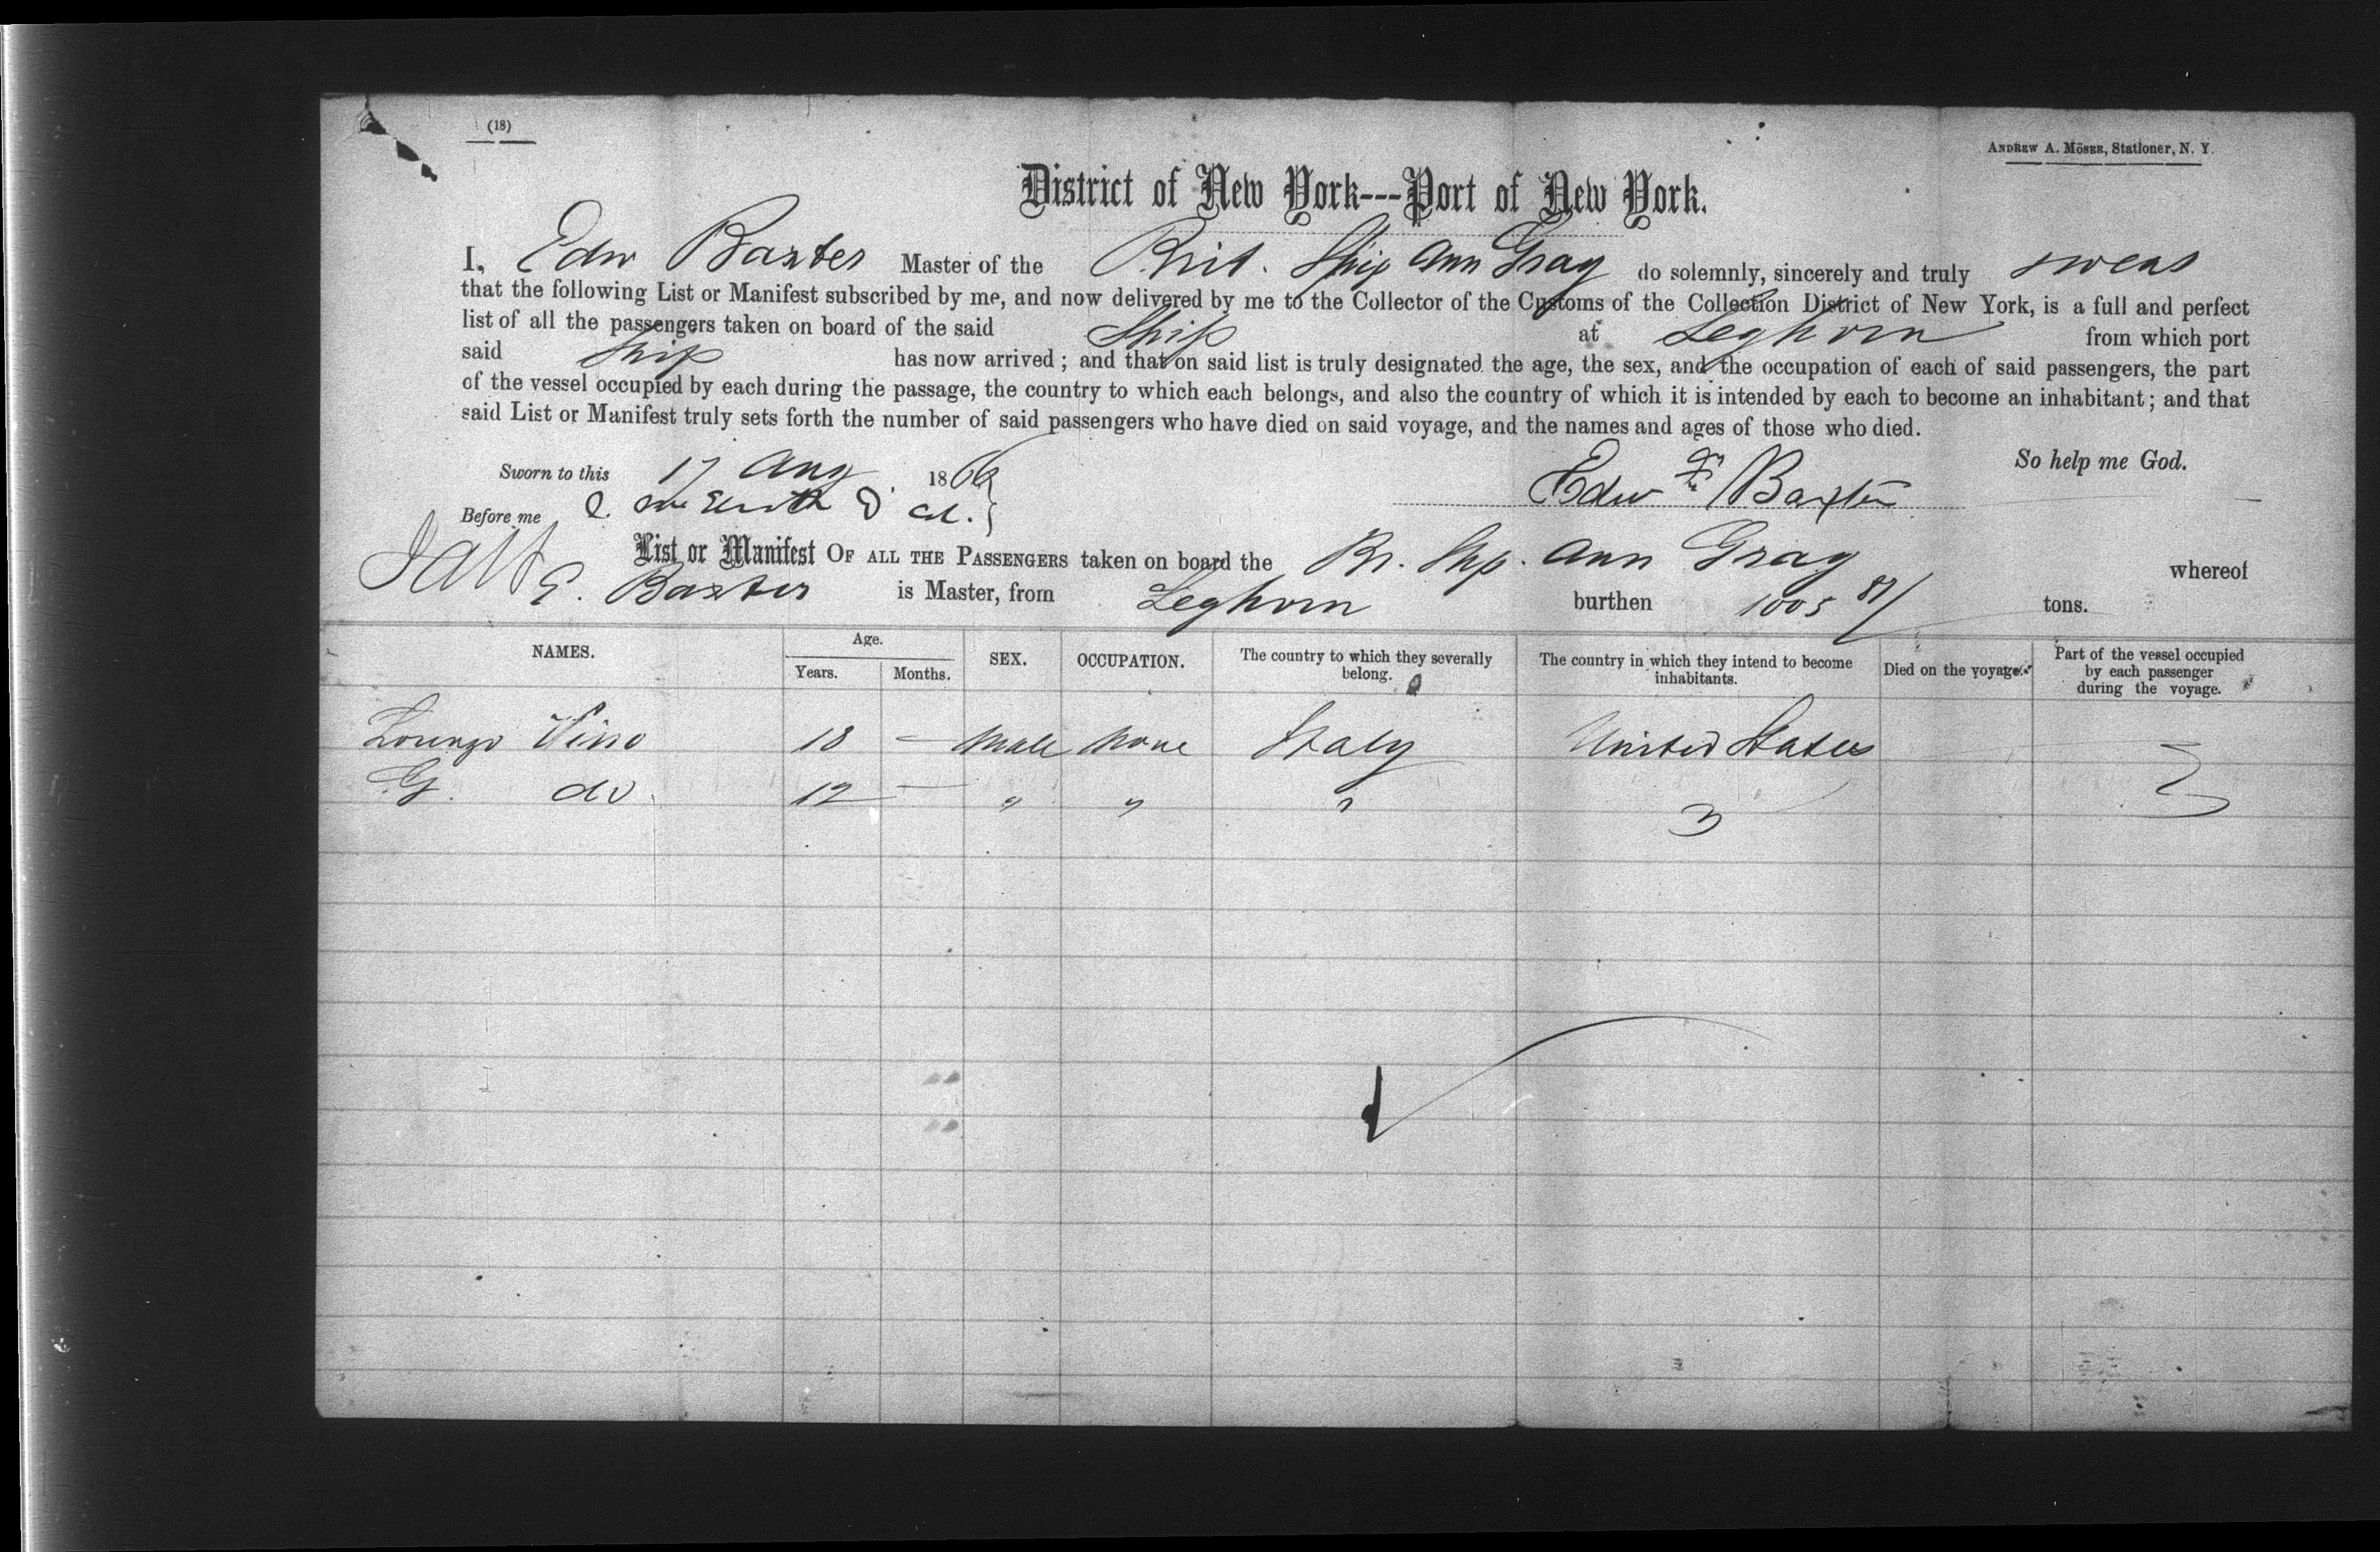 (18)
ANDREW A. MÖSER, Stationer, N. Y.
District of New York---Port of New York.
I, Edw Baxter Master of the Brit. Ship Ann Gray do solemnly, sincerely and truly swear
that the following List or Manifest subscribed by me, and now delivered by me to the Collector of the Customs of the Collection District of New York, is a full and perfect
list of all the passengers taken on board of the said Ship at Leghorn from which port
said Ship has now arrived; and that on said list is truly designated the age, the sex, and the occupation of each of said passengers, the part
of the vessel occupied by each during the passage, the country to which each belongs, and also the country of which it is intended by each to become an inhabitant; and that
said List or Manifest truly sets forth the number of said passengers who have died on said voyage, and the names and ages of those who died.
So help me God.
Sworn to this 17 Aug 1866
Edw Baxter
Before me
List or Manifest OF ALL THE PASSENGERS taken on board the Br. Shp. Ann Gray whereof
E. Baxter is Master, from Leghorn burthen 1005 tons.
NAMES. Age. Years. Months. SEX. OCCUPATION. The country to which they severally belong. The country in which they intend to become inhabitants. Died on the voyage. Part of the vessel occupied by each passenger during the voyage.
Lorenzo 18 — Male None Italy United States
G. do 12 — " " "